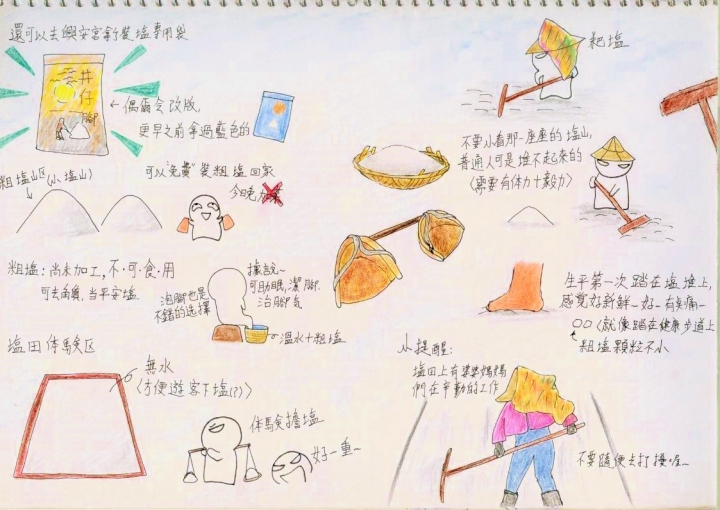 還可以去興安宮拿裝塩專用袋
井仔腳
←偶爾会改版,
更早之前拿過藍色的
粗塩山区(小塩山)
可以"免費"裝粗塩回家
粗塩：尚未加工,不·可·食·用
可去角質,當平安塩
泡腳也是
不錯的选擇
據說~
可助眠,潔腳.
治腳気
温水+粗塩
塩田体験区
無水
(方便遊客下塩(?))
体験擔塩
好~重~
耙塩
不要小看那一座座的塩山,
普通人可是堆不起來的
(需要有体力+毅力)
生平第一次踏在塩堆上,
感覚好新鮮~好~有夠痛~
○○(就像踏在健康步道上
粗塩顆粒不小
小提醒：
塩田上有婆婆媽媽
們在辛勤的工作
不要隨便去打擾喔~